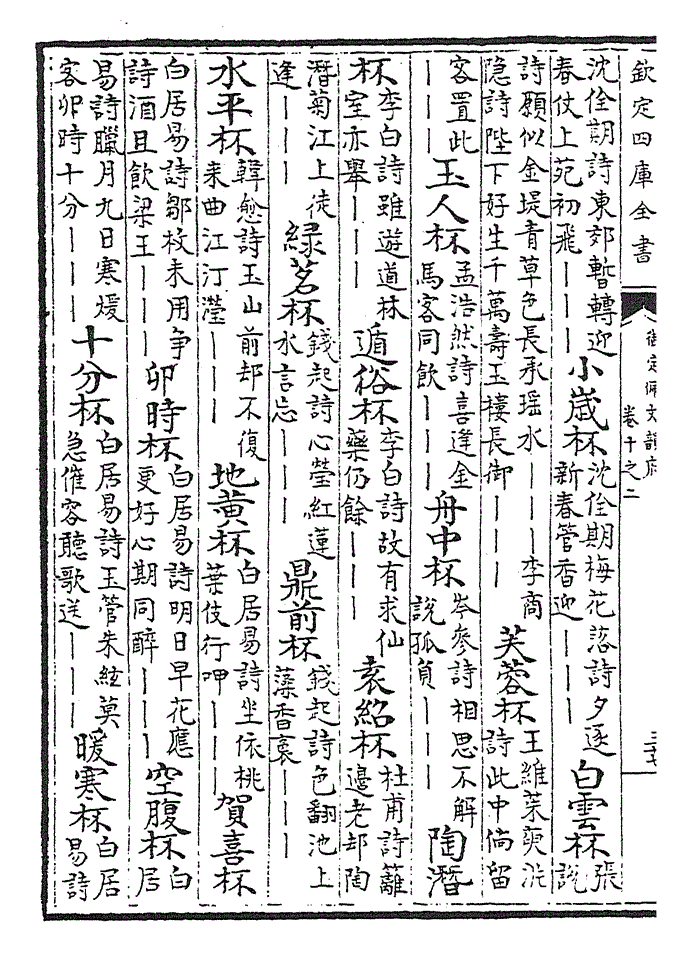 欽定四庫全書
御定佩文韻府
卷十之二
沈佺期詩東郊暫轉迎春仗上苑初飛｜｜｜小歳杯沈佺期梅花落詩夕逐新春管香迎｜｜｜白雲杯張說
詩願似金堤青草色長承瑶水｜｜｜李商隐詩陛下好生千萬壽玉樓長御｜｜｜芙蓉杯王維茱萸沜詩此中倘留
客置此｜｜｜玉人杯孟浩然詩喜逢金馬客同飲｜｜｜舟中杯岑參詩相思不解說孤負｜｜｜陶潛
杯李白詩雖遊道林室亦舉｜｜｜遁俗杯李白詩故有求仙藥仍餘｜｜｜袁紹杯杜甫詩籬邉老却陶
潛菊江上徒逢｜｜｜緑茗杯錢起詩心瑩紅蓮水言忘｜｜｜鼎前杯錢起詩色翻池上藻香裛｜｜｜
水平杯韓愈詩玉山前却不復來曲江汀瀅｜｜｜地黄杯白居易詩坐依桃葉伎行呷｜｜｜賀喜杯
白居易詩鄒枚未用争詩酒且飲梁王｜｜｜卯時杯白居易詩明日早花應更好心期同醉｜｜｜空腹杯白居
易詩臘月九日寒煖客卯時十分｜｜｜十分杯白居易詩玉管朱絃莫急催客聽歌送｜｜｜暖寒杯白居易詩